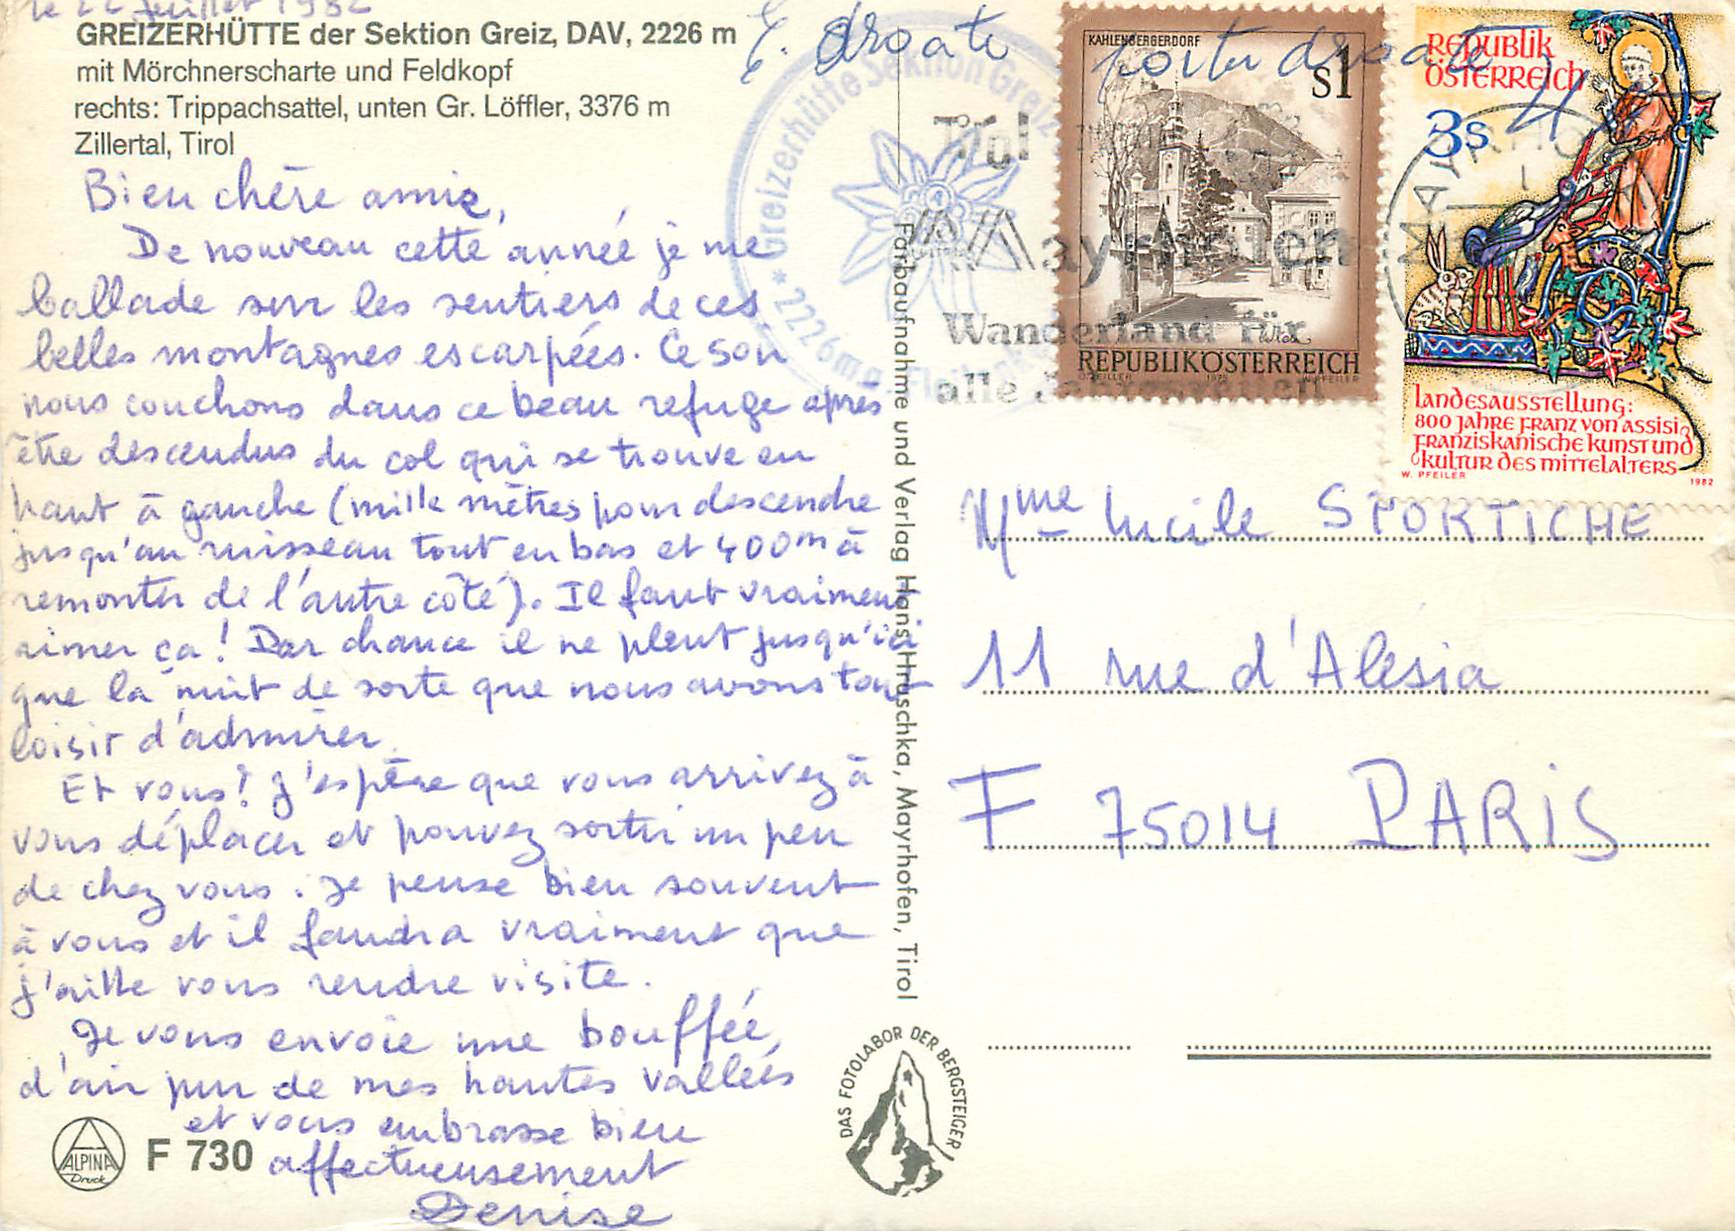 le 22 Juillet 1982
GREIZERHÜTTE der Sektion Greiz, DAV, 2226 m
mit Mörchnerscharte und Feldkopf
rechts: Trippachsattel, unten Gr. Löffler, 3376 m
Zillertal, Tirol
Bien chère amie,
De nouveau cette année je me
ballade sur les sentiers de ces
belles montagnes escarpées. Ce soir
nous couchons dans ce beau refuge après
être descendus du col qui se trouve en
haut à gauche (mille mètres pour descendre
jusqu'au ruisseau tout en bas et 400m à
remonter de l'autre côté). Il faut vraiment
aimer ça! Par chance il ne pleut jusqu'ici
que la nuit de sorte que nous avons tout
loisir d'admirer.
Et vous? J'espère que vous arrivez à
vous déplacer et pouvez sortir un peu
de chez vous. Je pense bien souvent
à vous et il faudra vraiment que
j'aille vous rendre visite.
Je vous envoie une bouffée,
d'air pur de mes hautes vallées
et vous embrasse bien
affectueusement
Denise
ALPINA
Druck
F 730
Greizerhütte Sektion Greiz
* 2226m
Farbaufnahme und Verlag Hans Hruschka, Mayrhofen, Tirol
DAS FOTOLABOR DER BERGSTEIGER
Tirol
Mayrhofen
Wanderland für
alle
KAHLENBERGERDORF
S1
REPUBLIK ÖSTERREICH
REPUBLIK
ÖSTERREICH
3s
MAYRHOFEN
LANDESAUSSTELLUNG:
800 JAHRE FRANZ VON ASSISI
FRANZISKANISCHE KUNST UND
KULTUR DES MITTELALTERS
W. PFEILER
1982
Mme Lucile SPORTICHE
11 rue d'Alesia
F 75014 PARIS